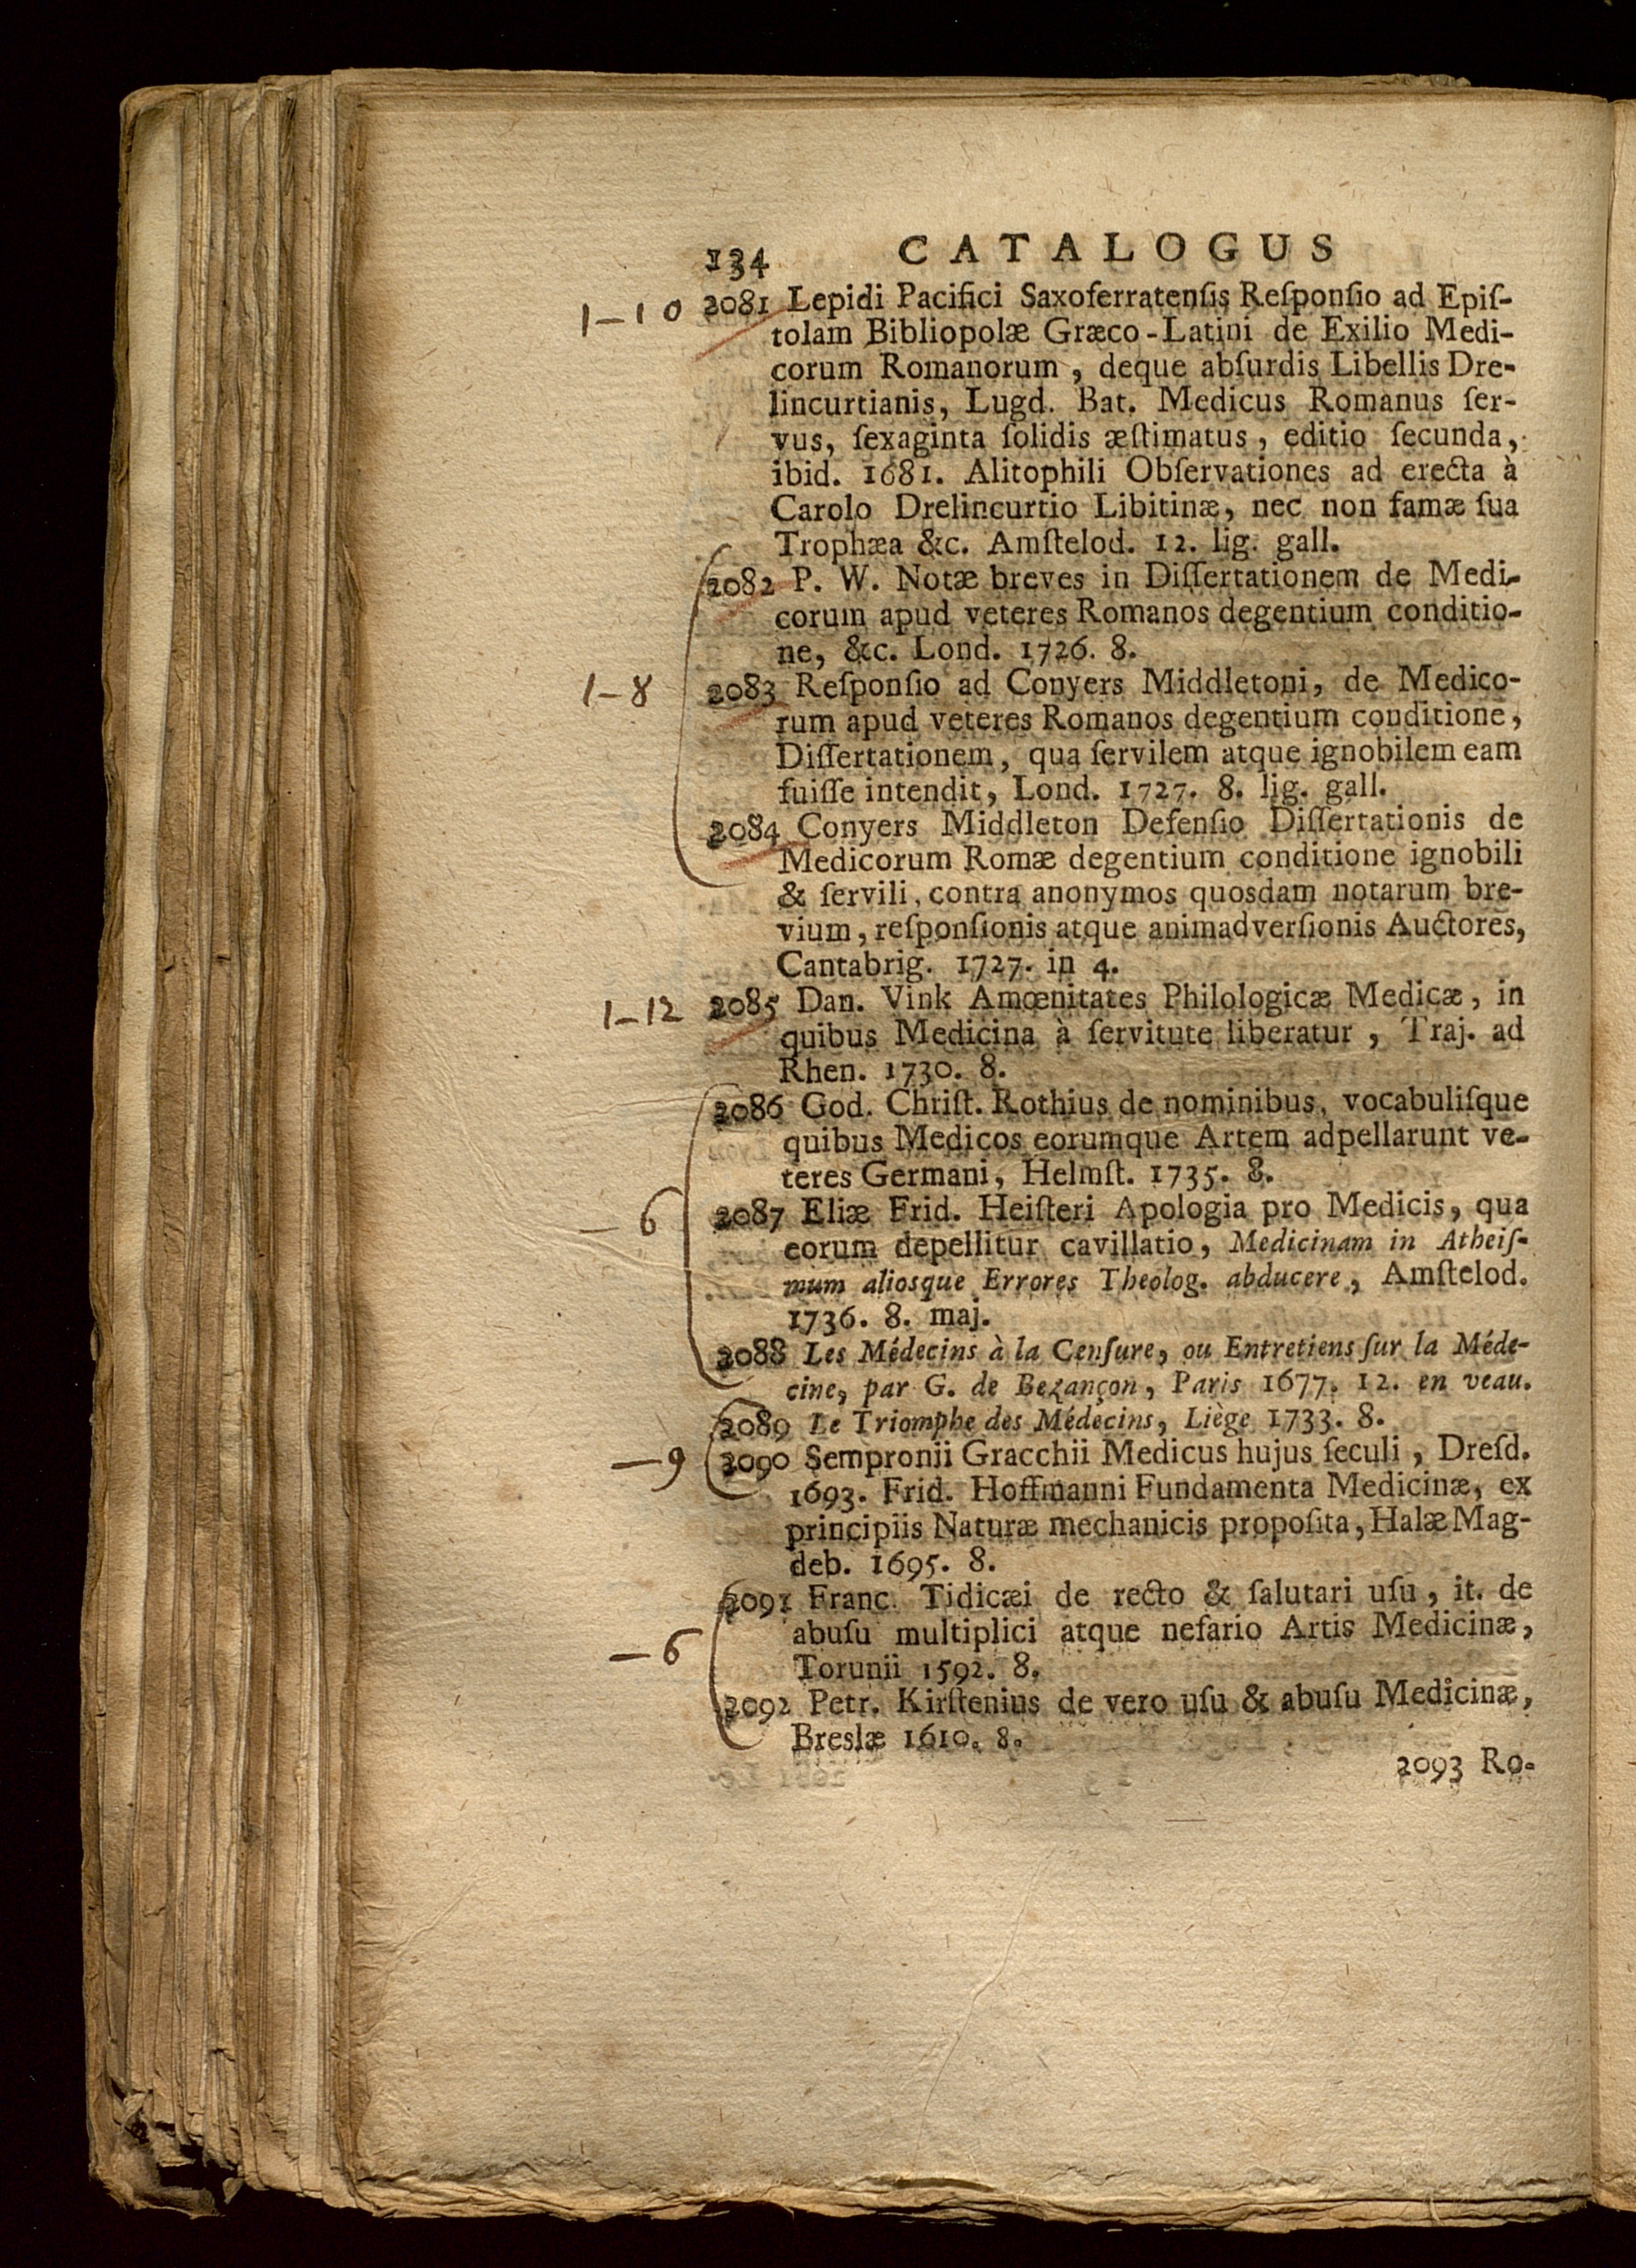 134 CATALOGUS
1-10 2081 Lepidi Pacifici Saxoferratenſis Reſponſio ad Epiſ-
tolam Bibliopolæ Græco-Latini de Exilio Medi-
corum Romanorum, deque abſurdis Libellis Dre-
lincurtianis, Lugd. Bat. Medicus Romanus ſer-
vus, ſexaginta ſolidis æſtimatus, editio ſecunda,
ibid. 1681. Alitophili Obſervationes ad erecta à
Carolo Drelincurtio Libitinæ, nec non famæ ſua
Trophæa &c. Amſtelod. 12. lig. gall.
2082 P. W. Notæ breves in Diſſertationem de Medi-
corum apud veteres Romanos degentium conditio-
ne, &c. Lond. 1726. 8.
1-8 2083 Reſponſio ad Conyers Middletoni, de Medico-
rum apud veteres Romanos degentium conditione,
Diſſertationem, qua ſervilem atque ignobilem eam
fuiſſe intendit, Lond. 1727. 8. lig. gall.
2084 Conyers Middleton Defenſio Diſſertationis de
Medicorum Romæ degentium conditione ignobili
& ſervili, contra anonymos quosdam notarum bre-
vium, reſponſionis atque animadverſionis Auctores,
Cantabrig. 1727. in 4.
1-12 2085 Dan. Vink Amœnitates Philologicæ Medicæ, in
quibus Medicina à ſervitute liberatur, Traj. ad
Rhen. 1730. 8.
2086 God. Chriſt. Rothius de nominibus, vocabuliſque
quibus Medicos eorumque Artem adpellarunt ve-
teres Germani, Helmſt. 1735. 8.
-6 2087 Eliæ Frid. Heiſteri Apologia pro Medicis, qua
eorum depellitur cavillatio, Medicinam in Atheiſ-
mum aliosque Errores Theolog. abducere, Amſtelod.
1736. 8. maj.
2088 Les Médecins à la Cenſure, ou Entretiens ſur la Méde-
cine, par G. de Bezançon, Paris 1677. 12. en veau.
2089 Le Triomphe des Médecins, Liège 1733. 8.
-9 2090 Sempronii Gracchii Medicus hujus ſeculi, Dreſd.
1693. Frid. Hoffmanni Fundamenta Medicinæ, ex
principiis Naturæ mechanicis propoſita, Halæ Mag-
deb. 1695. 8.
2091 Franc. Tidicæi de recto & ſalutari uſu, it. de
-6 abuſu multiplici atque nefario Artis Medicinæ,
Torunii 1592. 8.
2092 Petr. Kirſtenius de vero uſu & abuſu Medicinæ,
Breslæ 1610. 8.
2093 Ro-